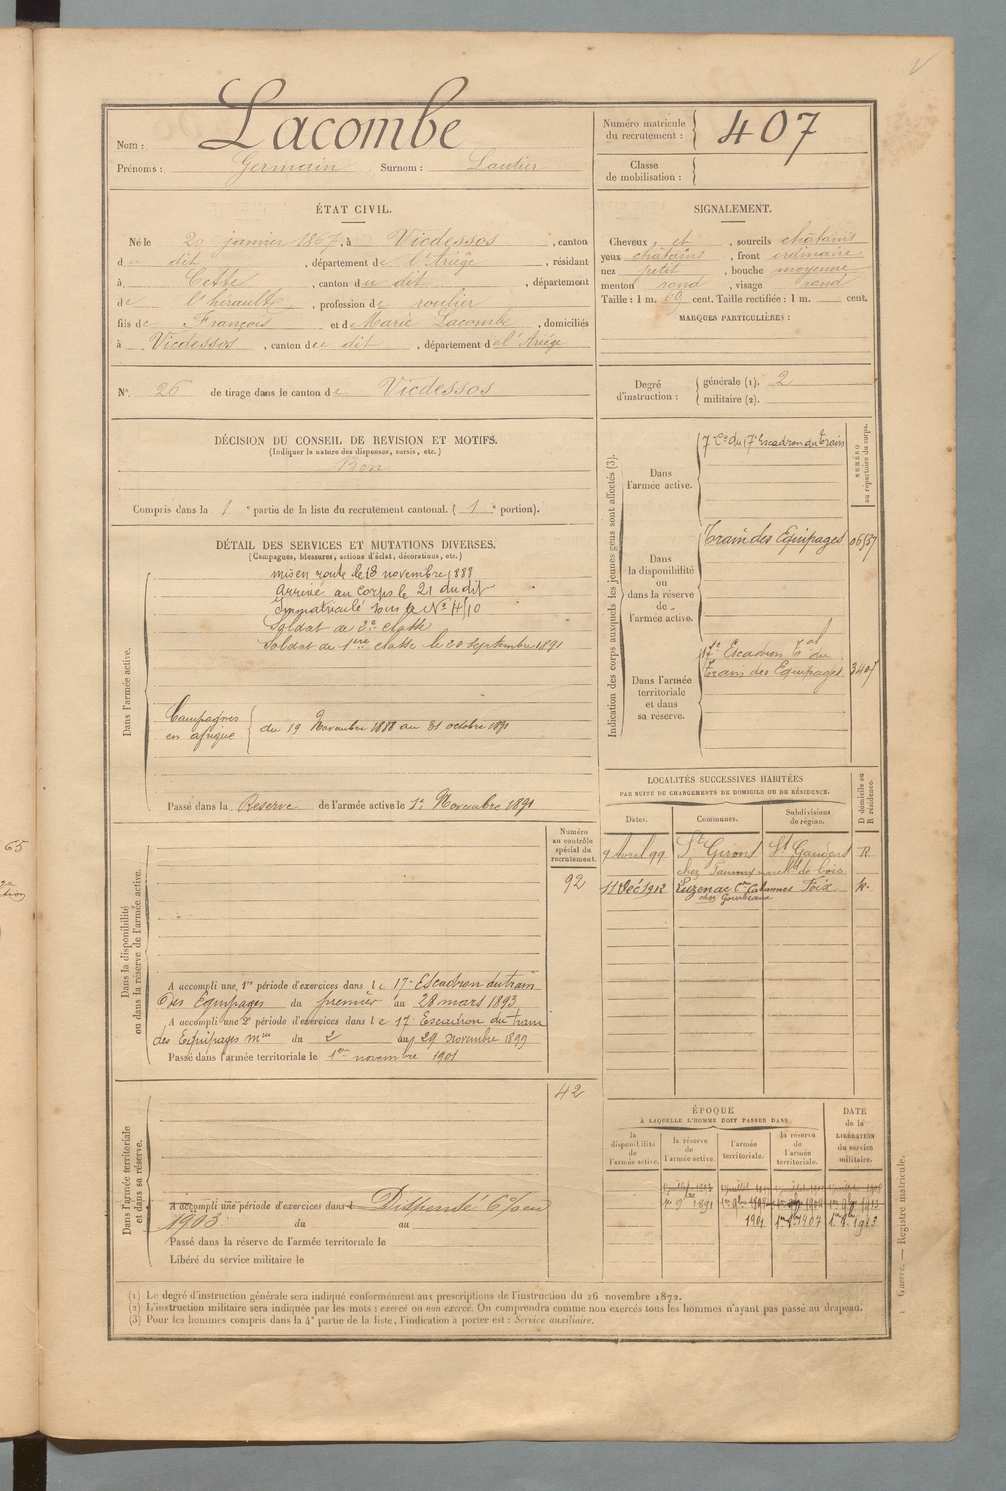 Nom : Lacombe
Prénoms : Germain Surnom : Lautier
Numéro matricule du recrutement : 407
Classe de mobilisation :
ÉTAT CIVIL.
Né le 20 janvier 1867, à Vicdessos, canton
de dit, département de l'Ariège, résidant
à Cette, canton du dit, département
de l'hérault, profession de roulier
fils de François et de Marie Lacombe, domiciliés
à Vicdessos, canton de dit, département de l'Ariége
N° 26 de tirage dans le canton de Vicdessos
SIGNALEMENT.
Cheveux et, sourcils châtains
yeux châtains, front ordinaire
nez petit, bouche moyenne
menton rond, visage rond
Taille : 1 m. 69 cent. Taille rectifiée : 1 m. cent.
MARQUES PARTICULIÈRES :
Degré d'instruction : générale (1). 2
militaire (2).
DÉCISION DU CONSEIL DE REVISION ET MOTIFS.
(Indiquer la nature des dispenses, sursis, etc.)
Bon
Compris dans la 1e partie de la liste du recrutement cantonal. ( 1e portion).
DÉTAIL DES SERVICES ET MUTATIONS DIVERSES.
(Campagnes, blessures, actions d'éclat, décorations, etc.)
Dans l'armée active.
mis en route le 18 novembre 1888
Arrivé au corps le 21 du dit
Immatriculé sous le N° 4110
Soldat de 2e classe
Soldat de 1ere classe le 20 septembre 1891
Campagnes en afrique du 19 Novembre 1888 au 31 octobre 1891
Passé dans la Reserve de l'armée active le 1er Novembre 1891
Indication des corps auxquels les jeunes gens sont affectés (3).
NUMÉRO au répertoire du corps.
Dans l'armée active.
7e Cie du 17e Escadron du train
Dans la disponibilité ou dans la réserve de l'armée active.
Train des Equipages
Dans l'armée territoriale et dans sa réserve.
17e Escadron Tal du
train des Equipages 3407
LOCALITÉS SUCCESSIVES HABITÉES
PAR SUITE DE CHANGEMENTS DE DOMICILE OU DE RÉSIDENCE.
D domicile ou R résidence.
Dates. Communes. Subdivisions de région.
9 Avril 99 St Girons St Gaudens R
11 Déc 1912 Luzenac Foix
Dans la disponibilité ou dans la réserve de l'armée active.
Numéro au contrôle spécial du recrutement.
92
A accompli une 1re période d'exercices dans le 17e Escadron du train
des Equipages du premier au 28 mars 1893
A accompli une 2e période d'exercices dans le 17e Escadron du train
des Equipages mres du 2 au 29 novembre 1899
Passé dans l'armée territoriale le 1er novembre 1901
Dans l'armée territoriale et dans sa réserve.
42
A accompli une période d'exercices dans l Dispensé 6% en
1903 du au
Passé dans la réserve de l'armée territoriale le
Libéré du service militaire le
ÉPOQUE
À LAQUELLE L'HOMME DOIT PASSER DANS
la disponibilité de l'armée active.
la réserve de l'armée active.
l'armée territoriale.
la réserve de l'armée territoriale.
DATE de la LIBÉRATION du service militaire.
1er 9bre 1891
1901 1er 9bre 1907 1er 9bre 1913
(1) Le degré d'instruction générale sera indiqué conformément aux prescriptions de l'instruction du 26 novembre 1872.
(2) L'instruction militaire sera indiquée par les mots : exercé ou non exercé. On comprendra comme non exercés tous les hommes n'ayant pas passé au drapeau.
(3) Pour les hommes compris dans la 4e partie de la liste, l'indication à porter est : Service auxiliaire.
Guerre. — Registre matricule.
65